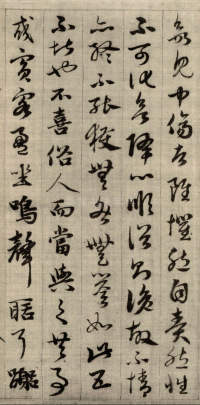 欲見中傷者雖懼然自責然性
不可化欲降心順俗則詭故不情
亦終不能獲無咎無譽如此五
不堪也不喜俗人而當與之共事
或賓客盈坐鳴聲聒耳囂